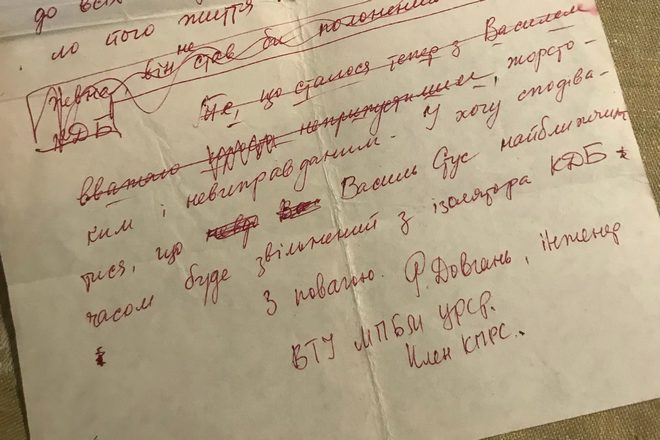 до всіх
ло його життя.
не
Невже, він став би полоненим
КДБ
Те, що сталося тепер з Василем
вважаю неприпустимим, жорсто-
ким і невиправданим. Я хочу сподіва-
тися, що Василь Стус найближчим
часом буде звільнений з ізолятора КДБ
З повагою. Р. Довгань, інженер
ВТУ МПБМ УРСР.
Член КПРС.